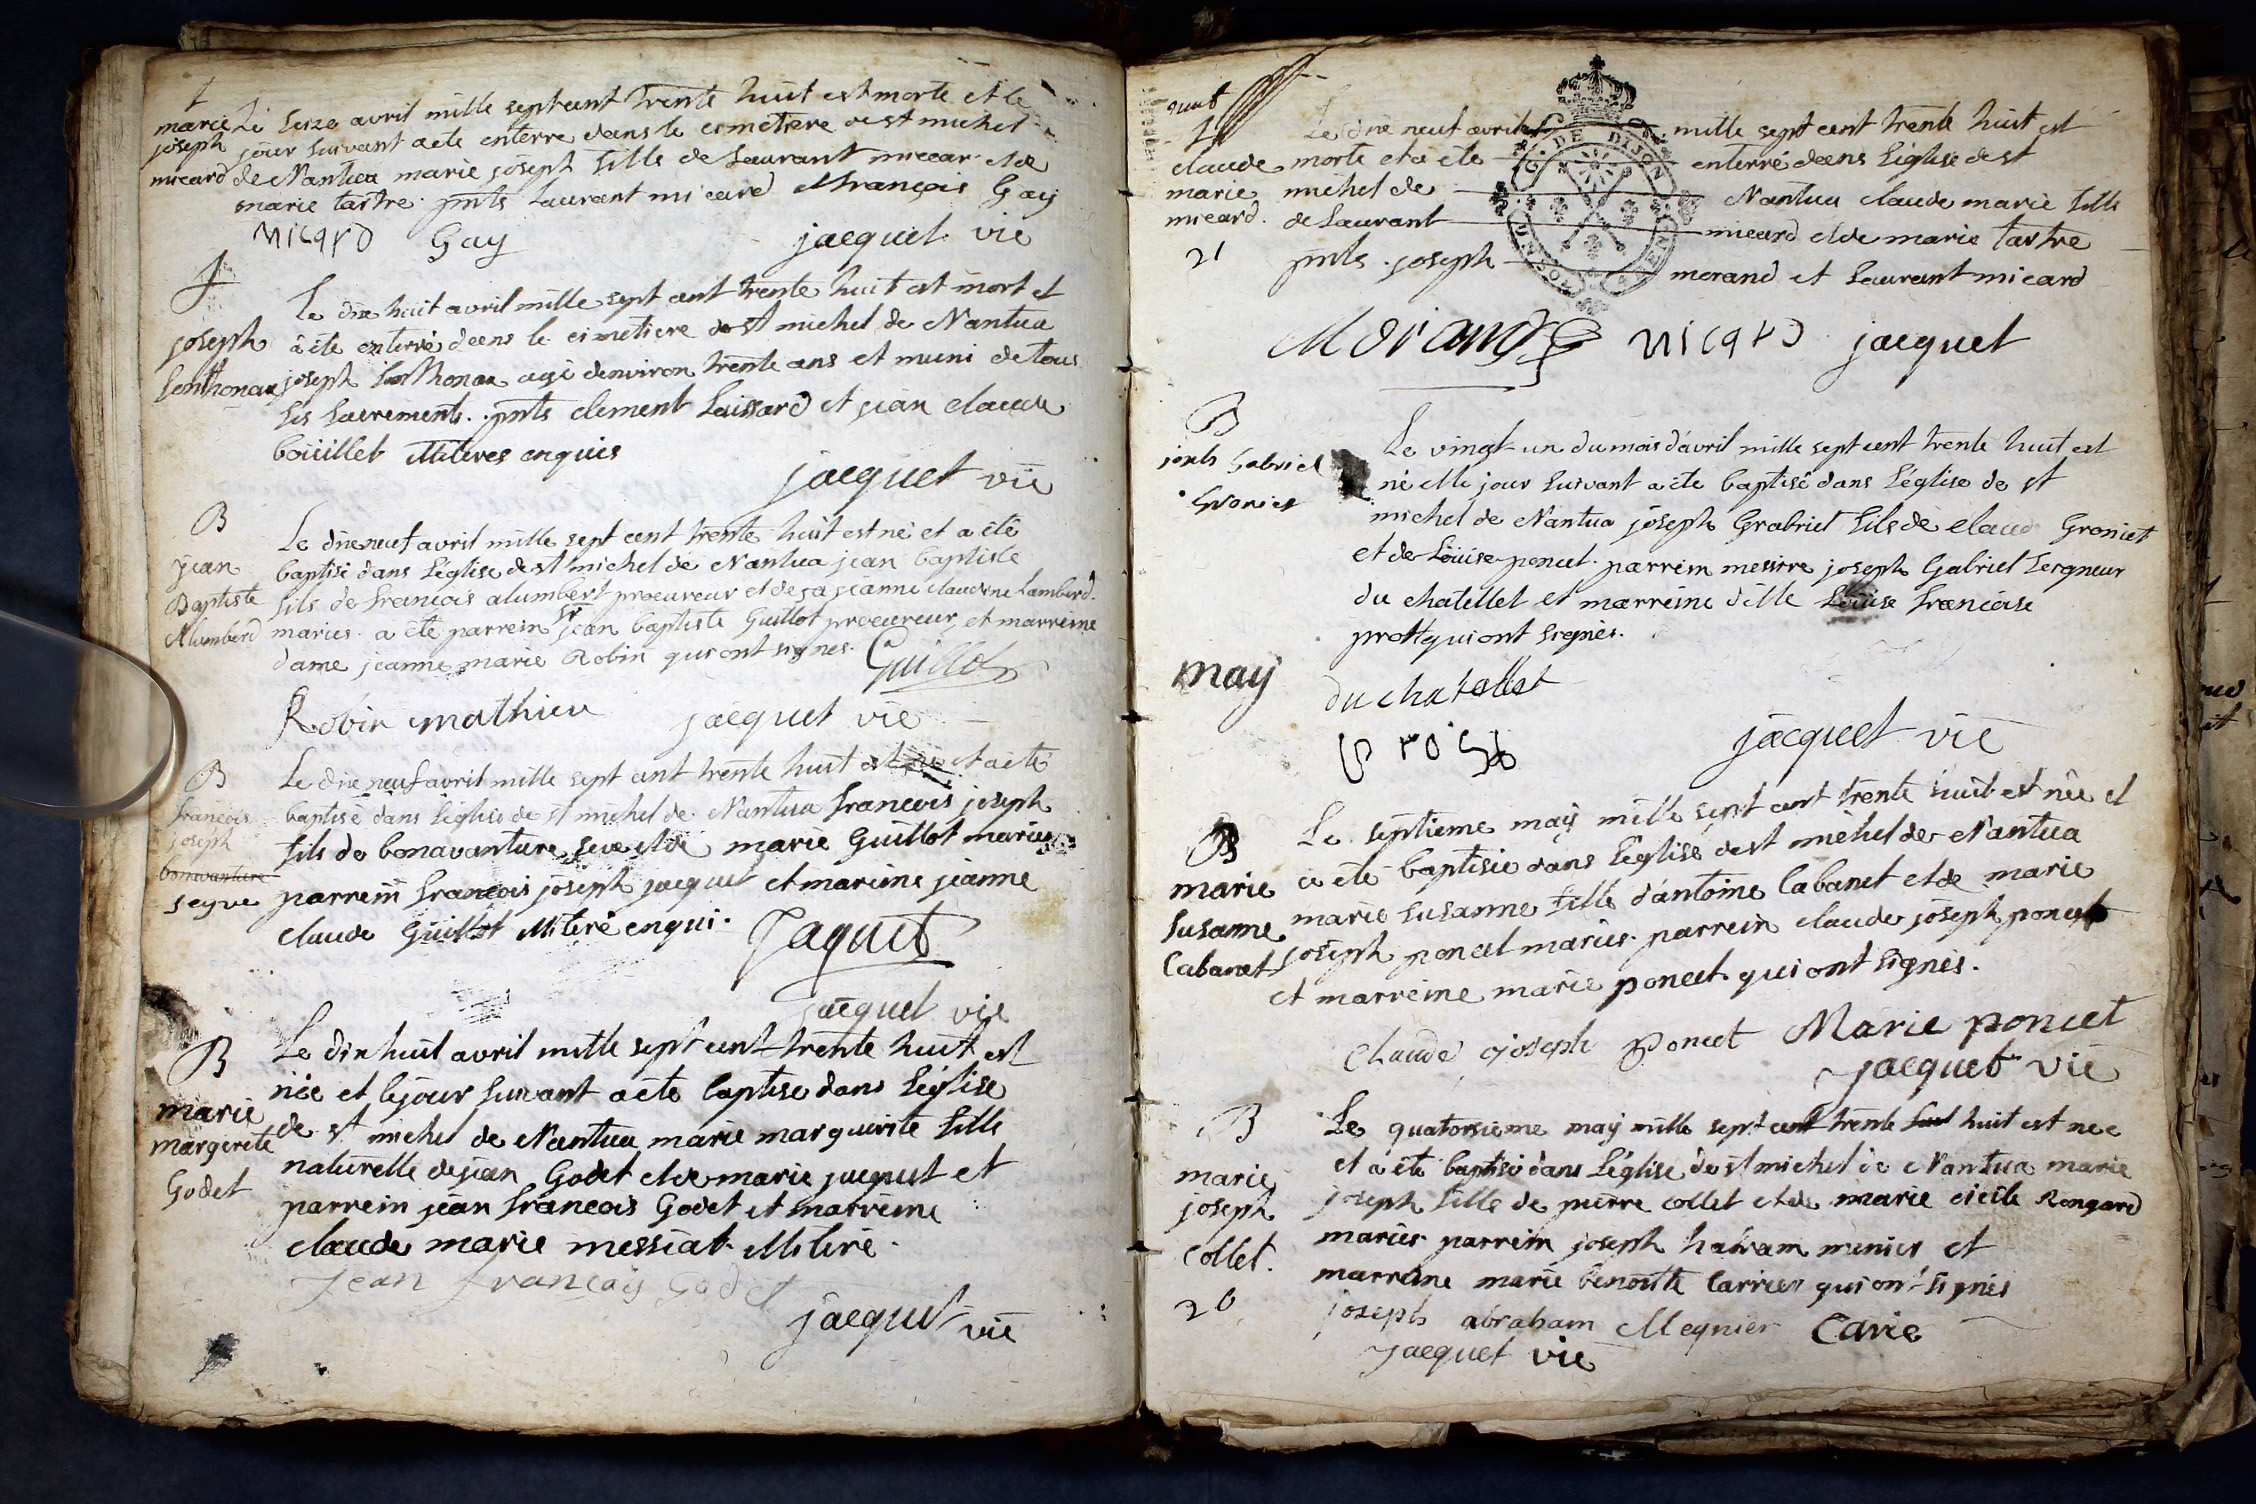 marie
joseph
micard
Le seize avril mille sept cent trente huit est morte et le
jour suivant a ete enterre dans le cimetiere de st michel
de Nantua marie joseph fille de Laurant miccar et de
marie tartre. pnts Laurant micard et françois Gay
micard Gay jacquet vic
joseph
Lenthonax
Le dix huit avril mille sept cent trente huit est mort et
à ete enterré dans le cimetiere de st michel de Nantua
joseph Lenthonax agé denviron trente ans et muni de tous
les sacrements. pnts clement Laissard et jean claude
boüillet illiteres enquis
jacquet vic
B
jean
Baptiste
Alumberd
Le dixneuf avril mille sept cent trente huit est né et a été
baptisé dans L'église de st michel de Nantua jean baptiste
fils de francois alumbert procureur et de jeanne claudine Lamberd.
maries. a été parrein sr jean baptiste Guillot procureur, et marreine
dame jeanne marie Robin qui ont signes. Guillot
Robin mathieu jacquet vic
B
françois
joseph
bonavanture
segue
Le dixneuf avril mille sept cent trente huit est né et a eté
baptisé dans l'église de st michel de Nantua francois joseph
fils de bonavanture seve et de marie Guillot maries
parrein francois joseph jacquet et mareine jeanne
claude Guillot illiteré enqui.
Jaquet
jacquet vic
B
marie
margerite
Godet
Le dix huit avril mille sept cent trente huit est
née et le jour suivant a ete baptise dans L'église
de st michel de Nantua marie marguirite fille
naturelle de jean Godet et de marie jacquet et
parrein jean francois Godet et marreine
claude marie messiat. illiteré.
Jean françois Godet
jacquet vic
claude
marie
micard.
21
Le dix neuf avril mille sept cent trente huit est
morte et a ete enterré dans L'église de st
michel de Nantua claude marie fille
de Laurant micard et de marie tartre
pnts. joseph morand et Laurant micard
G. DE DIJON
Morand micard jacquet
B
josph Gabriel
Groniet
Le vingt un du mois d'avril mille sept cent trente huit est
né et le jour suivant a ete baptisé dans L'église de st
michel de Nantua joseph Grabriel fils de claud Groniet
et de Loüise poncet. parrein messire joseph Gabriel seigneur
du chatellet et marreine dlle Loüise francoise
prost qui ont signés.
may
du chatellet
jacquet vic
B
marie
susanne
Cabanet
Le septieme may mille sept cent trente huit est née et
a été baptisée dans L'église de st michel de Nantua
marie susanne fille d'antoine Cabanet et de marie
joseph poncet maries. parrein claude joseph poncet
et marreine marie poncet qui ont signés.
Claude joseph poncet Marie poncet
jacquet vic
B
marie
joseph
collet.
20
Le quatorsieme may mille sept cent trente huit est née
et a ete baptisé dans L'église de st michel de Nantua marie
joseph fille de pierre collet et de marie cicile Rongard
maries. parrein joseph habram munier et
marreine marie benoitte Carrier qui ont signés
joseph abraham Megnier Carie
jacquet vic